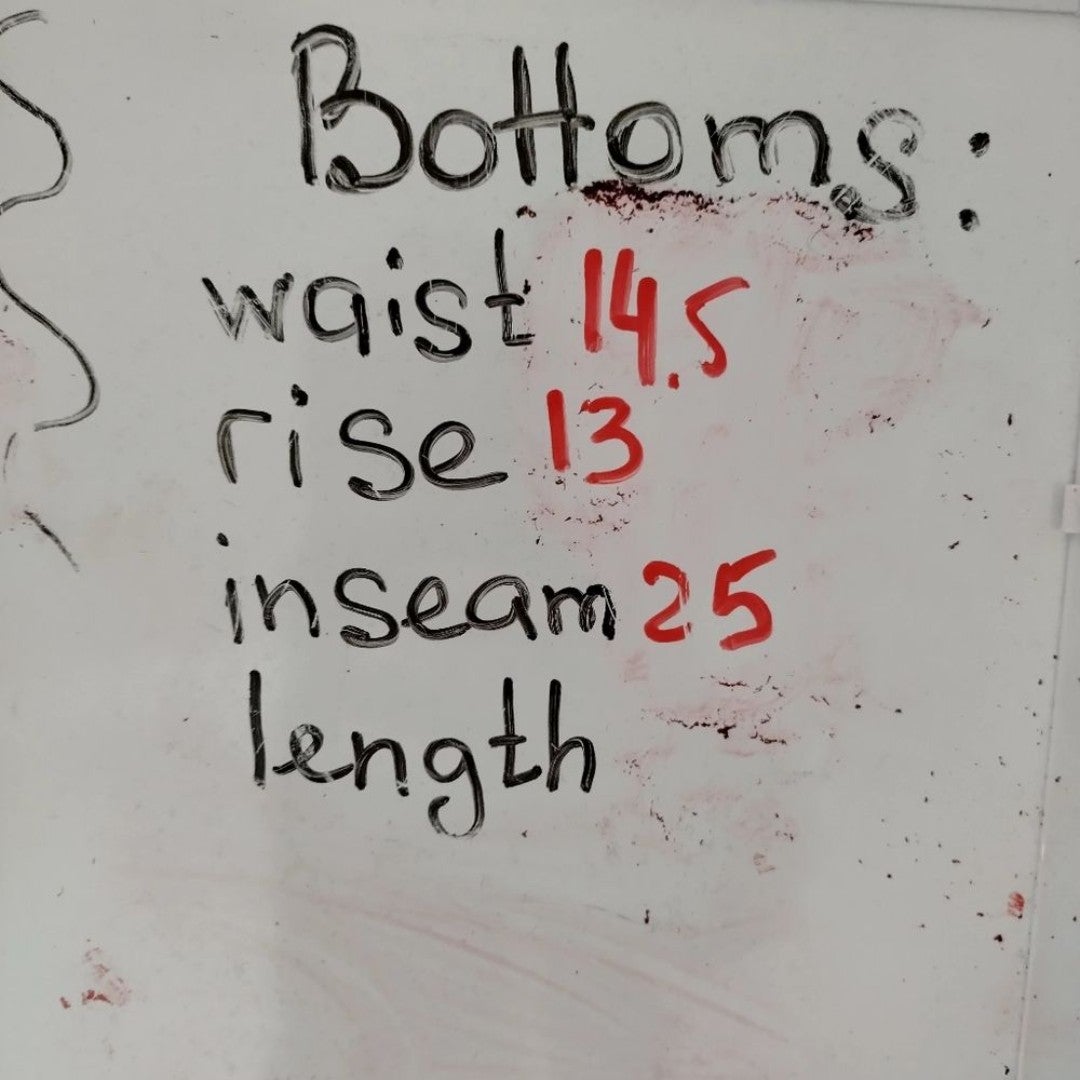 Bottoms:
waist 14.5
rise 13
inseam 25
length